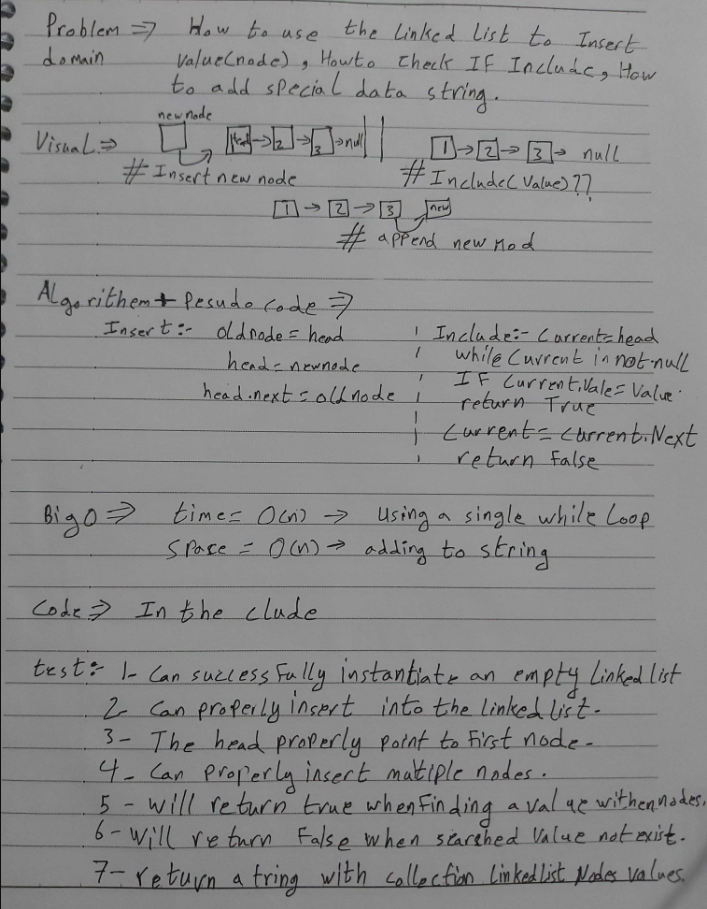 Problem => How to use the Linked List to Insert
domain value(node), How to check IF Include, How
to add special data string.
newnode
Visual => Head -> 2 -> 3 -> null 1 -> 2 -> 3 -> null
# Insert new node # Include(Value)??
1 -> 2 -> 3 new
# append new nod
Algorithem + Pesudo code =>
Insert:- oldnode = head Include:- Current=head
head = newnode while Current in not null
head.next = oldnode IF Current.Vale = Value
return True
Current = Current.Next
return False
Big O => time = O(n) -> using a single while Loop
Space = O(n) -> adding to string
Code => In the clude
test:- 1- Can successfully instantiate an empty Linked list
2- Can properly insert into the linked list.
3- The head properly point to First node.
4- Can properly insert maltiple nodes.
5- will return true when Finding a value withen nodes.
6- Will return False when searched Value not exist.
7- return a tring with collection Linkedlist Nodes values.